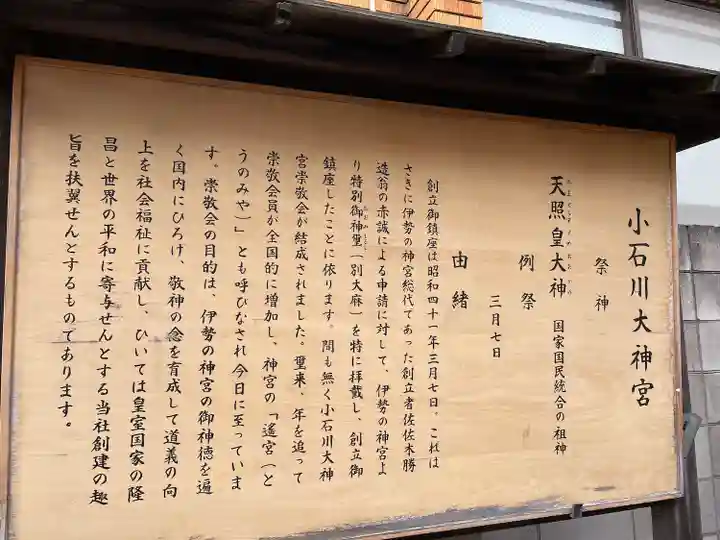 小石川大神宮
祭神
天照皇大神 国家国民統合の祖神
例祭
三月七日
由緒
創立御鎮座は昭和四十一年三月七日。これは
さきに伊勢の神宮総代であった創立者佐佐木勝
造翁の赤誠による申請に対して、伊勢の神宮よ
り特別御神璽(別大麻)を特に拝戴し、創立御
鎮座したことに依ります。間も無く小石川大神
宮崇敬会が結成されました。爾来、年を追って
崇敬会員が全国的に増加し、神宮の「遙宮(と
うのみや)」とも呼びなされ今日に至っていま
す。崇敬会の目的は、伊勢の神宮の御神徳を遍
く国内にひろげ、敬神の念を育成して道義の向
上を社会福祉に貢献し、ひいては皇室国家の隆
昌と世界の平和に寄与せんとする当社創建の趣
旨を扶翼せんとするものであります。